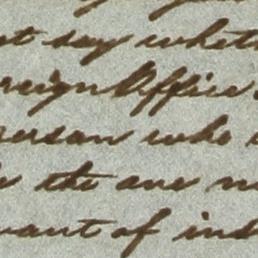 t say wheth
reign Office
erson who
the one n
want of ind